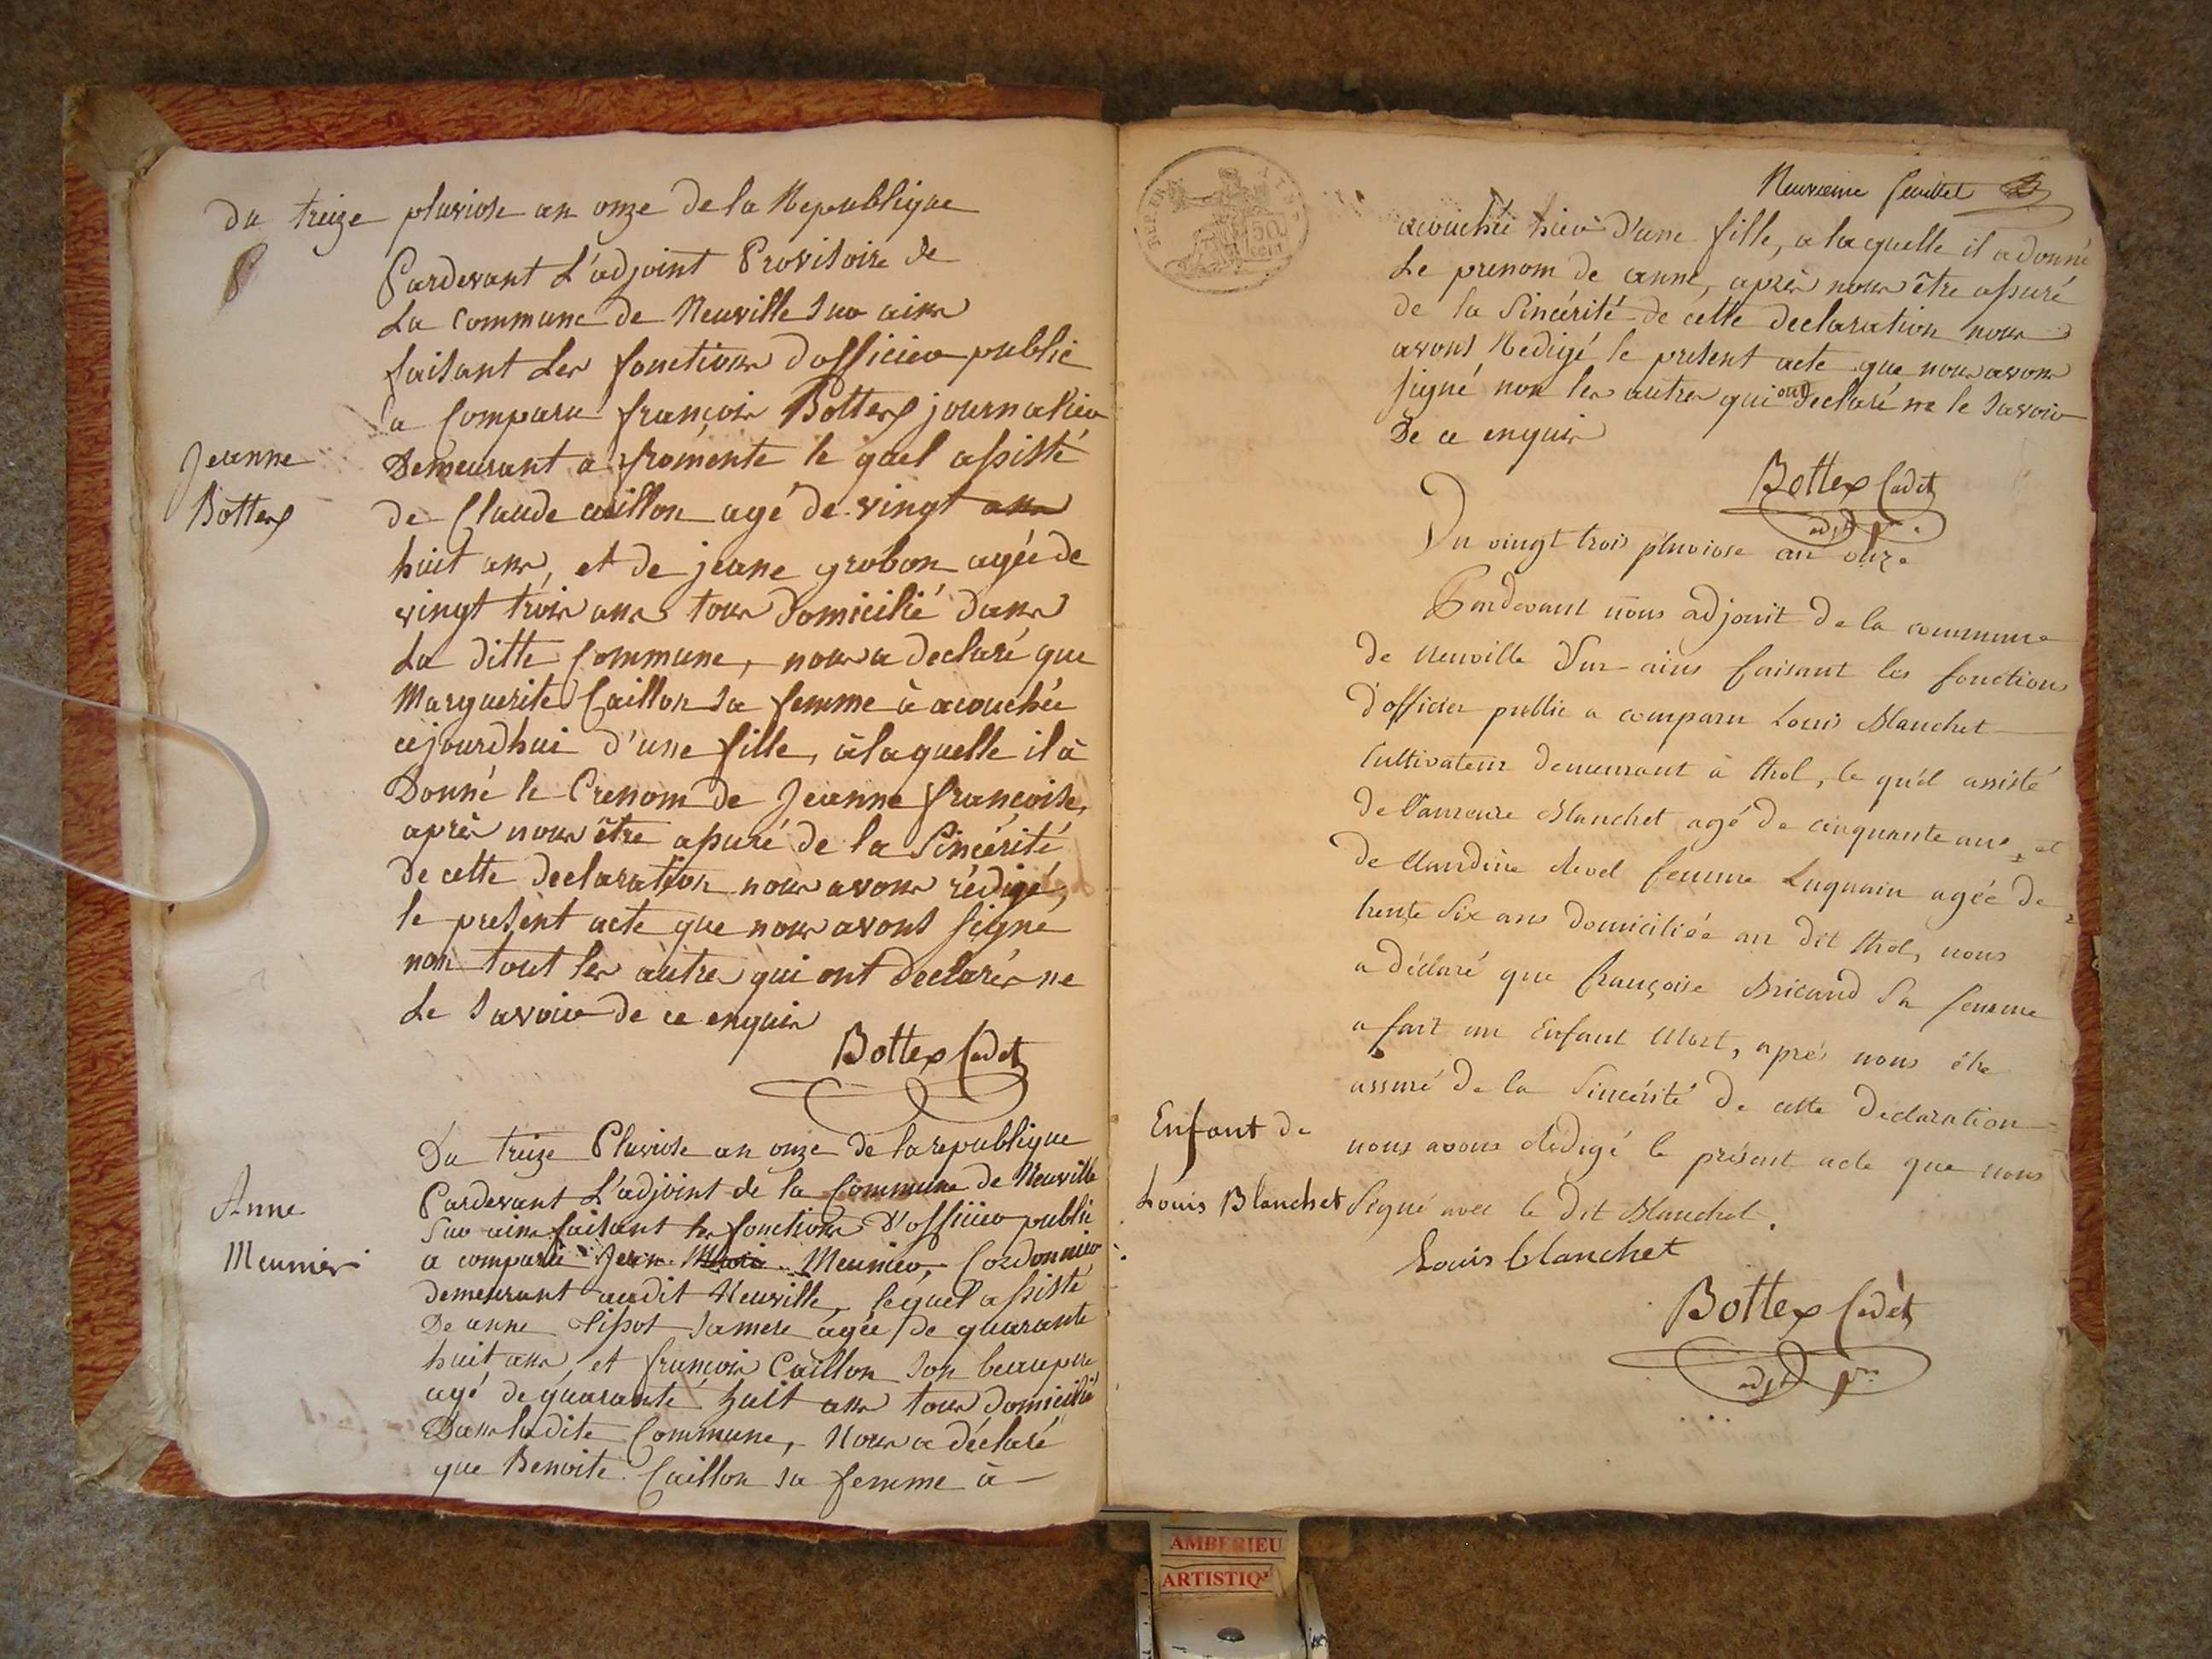 Du treize pluviose an onze de la Republique
Pardevant L'adjoint Provisoire de
La Commune de Neuville Sur ains
faisant Les fonctions d'officier public
a Comparu françois Bottex journalier
Demeurant a fromente le quel assisté
de Claude caillon agé de vingt ans
huit ans, et de jeane grobon agée de
vingt trois ans tous domicilié dans
La ditte Commune, nous a declaré que
Marguerite Caillon sa femme à acouchée
cejourdhui d'une fille, àlaquelle il à
Donné le Prenom de Jeanne françoise,
après nous être assuré de la Sincérité
de cette declaration nous avons rédigé,
le present acte que nous avons signé
non tout les autres qui ont declarés ne
Le savoir de ce enquis
Jeanne
Bottex
Bottex Cadet
Du treize Pluviose an onze de la republique
Pardevant L'adjoint de la Commune de Neuville
Sur ains faisant les fonctions d'officier public
a comparu Jean Marie Meunier, Cordonnier
demeurant audit Neuville, lequel assisté
De anne sa mere agée de quarante
huit ans, et françois Caillon son beaupere
agé de quarante huit ans tous domicilié
Dans ladite Commune, Nous a déclaré
que Benoite Caillon sa femme à
Anne
Meunier
Neuvieme feuillet
REP. FRA.
50
CENT
acouchée hier d'une fille, a laquelle il a donné
Le prenom de anne, après nous être assuré
de la Sincérité de cette declaration nous
avons Redigé le present acte que nous avons
signé non les autres qui ont declaré ne le savoir
De ce enquis
Bottex Cadet
adjt pre
Du vingt trois pluviose an onze
Pardevant nous adjoint de la commune
de Neuville Sur ains faisant les fonctions
d'officier public a comparu Louis Blanchet
Cultivateur demeurant à thol, le quel assisté
de Blanchet agé de cinquante ans, et
de Claudine femme agée de
trente Six ans domiciliée au dit thol, nous
a déclaré que françoise Bricaud Sa femme
a fait un Enfant Mort, après nous être
assuré de la Sincérité de cette declaration
nous avons Redigé le présent acte que nous
Signé avec le dit Blanchet.
Enfant de
Louis Blanchet
Louis blanchet
Bottex Cadet
adjt pre
AMBERIEU
ARTISTIQ